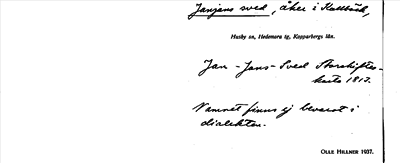 Janjans sved, åker i Kallbäck,
Husby sn, Hedemora tg, Kopparbergs län.
Jan-Jans-Sved Storskiftes-
karta 1813.
Namnet finns ej bevarat i
dialekten.
OLLE HILLNER 1937.